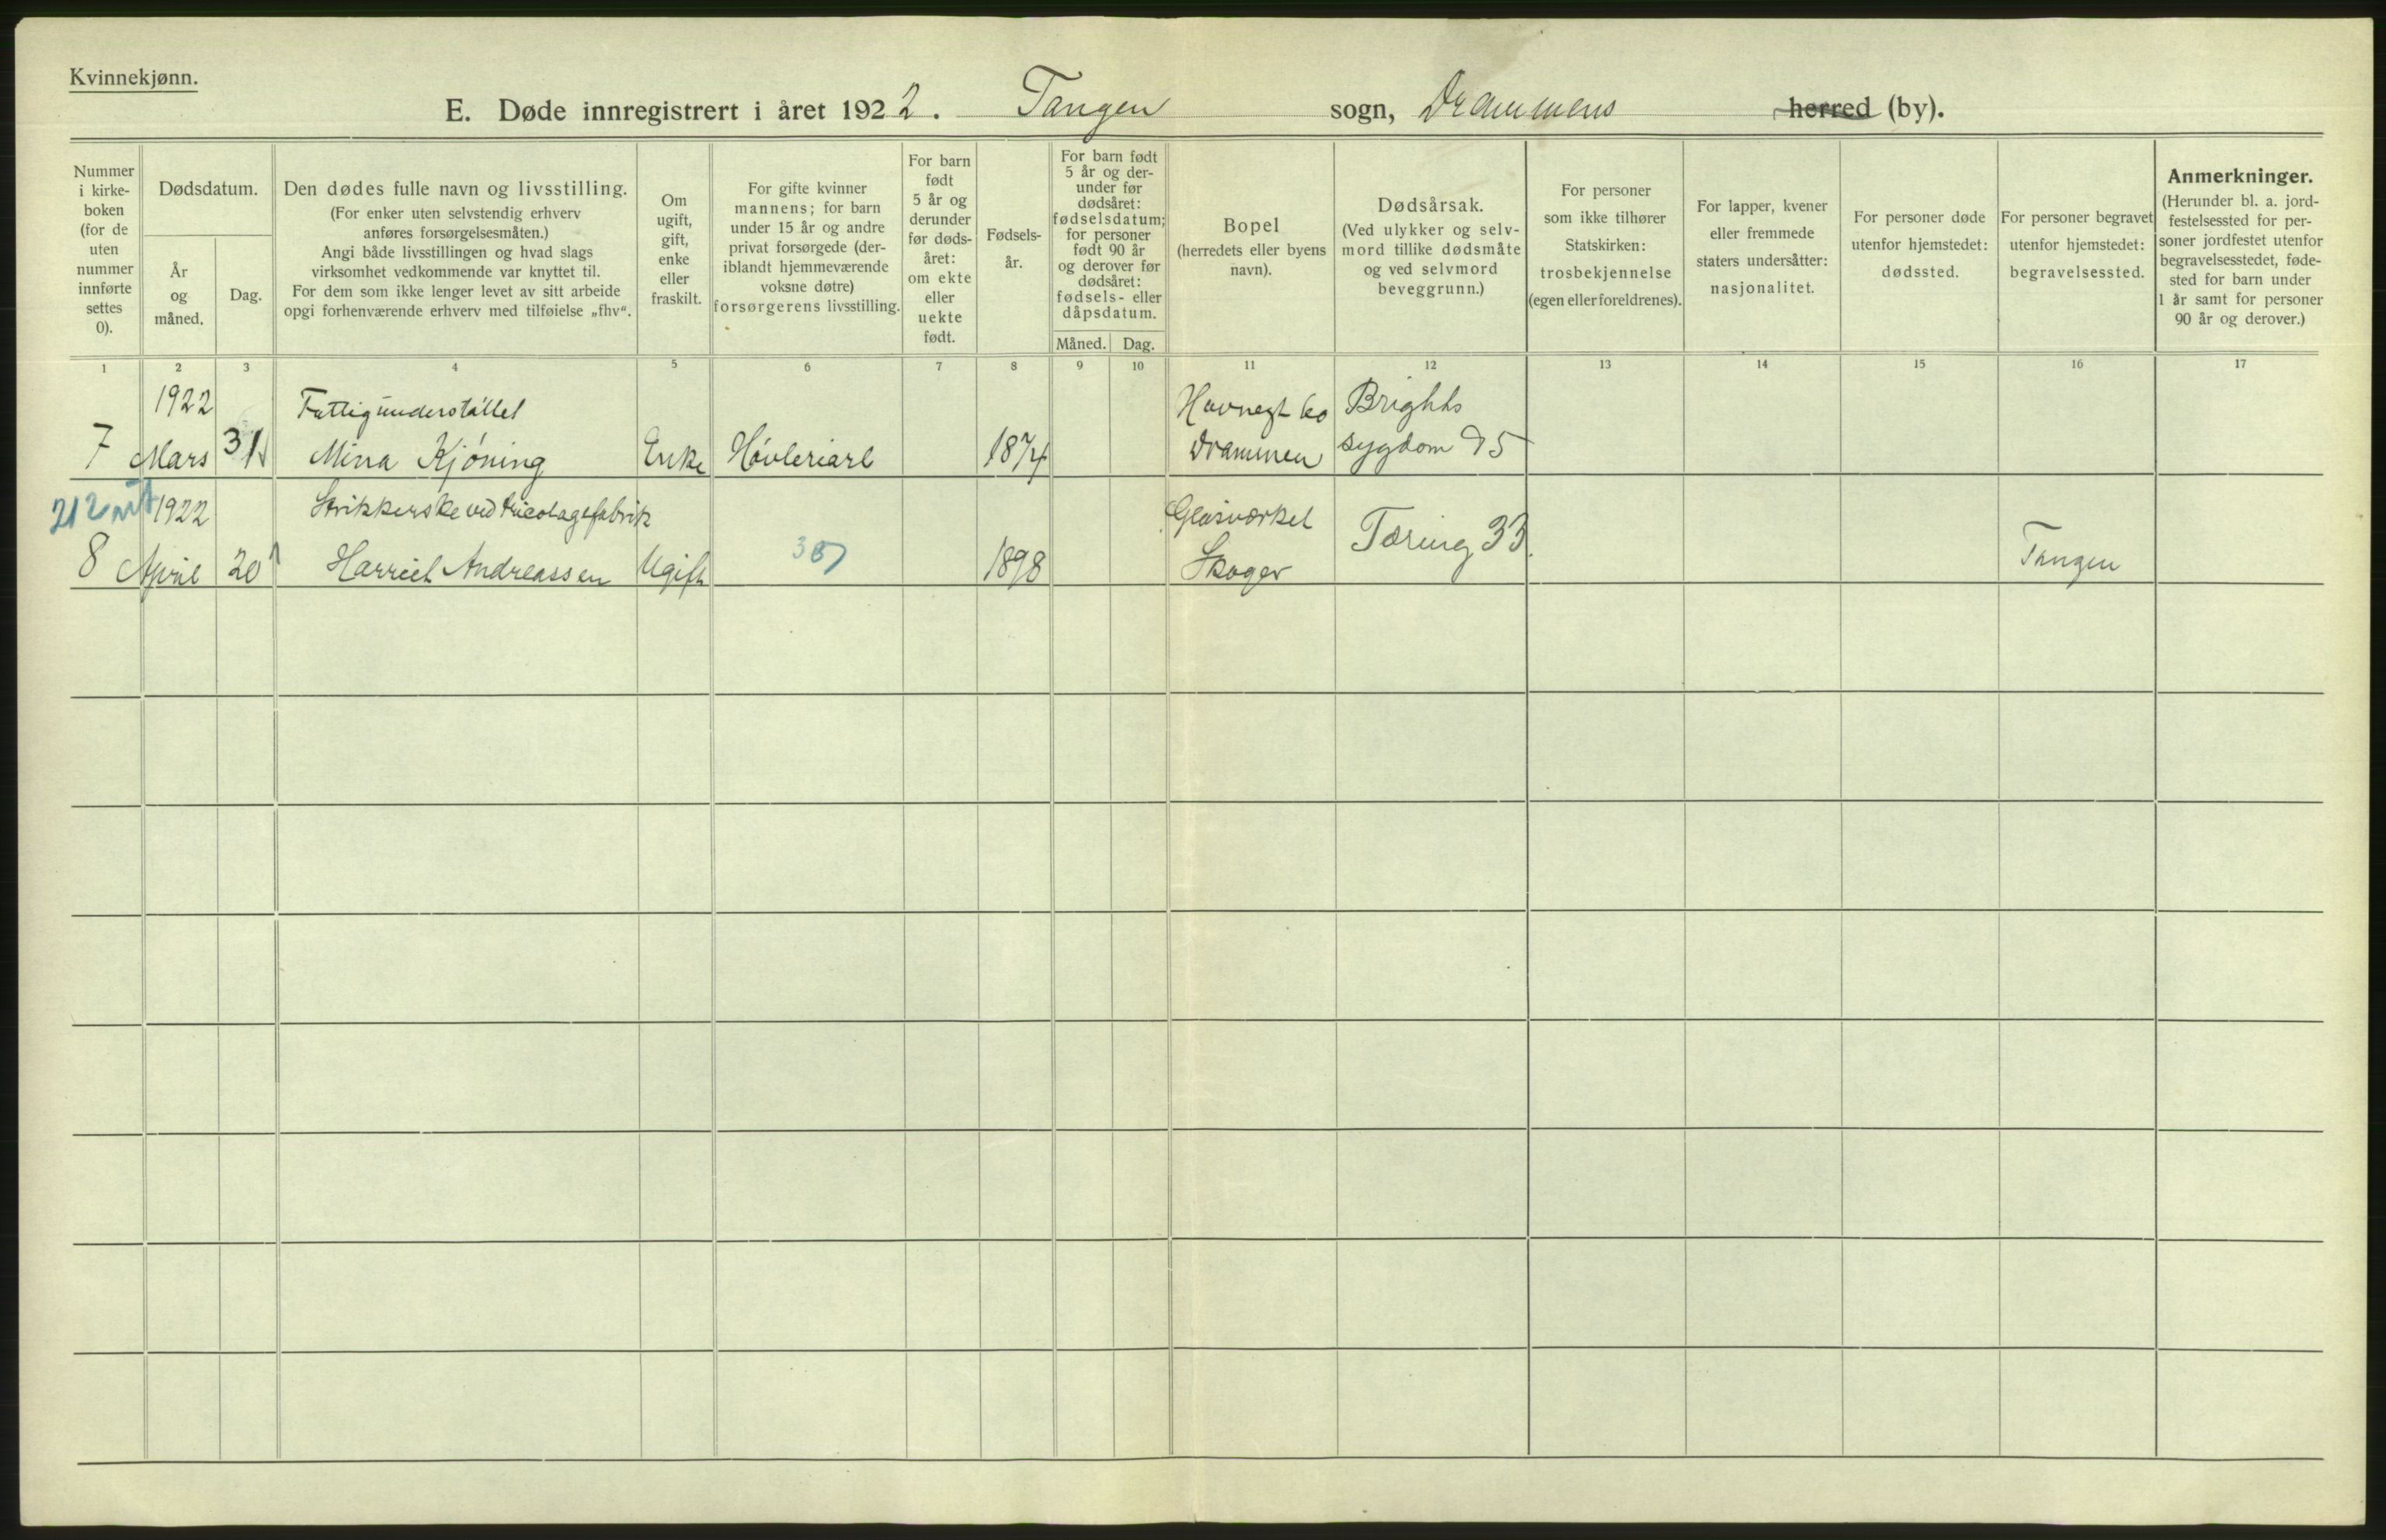 Kvinnekjønn.
E. Døde innregistrert i året 1922. Tangen sogn, Drammens herred (by).
Nummer
i kirke-
boken
(for de
uten
nummer
innførte
settes
0).
Dødsdatum.
År
og
måned.
Dag.
Den dødes fulle navn og livsstilling.
(For enker uten selvstendig erhverv
anføres forsørgelsesmåten.)
Angi både livsstillingen og hvad slags
virksomhet vedkommende var knyttet til.
For dem som ikke lenger levet av sitt arbeide
opgi forhenværende erhverv med tilføielse „fhv“.
Om
ugift,
gift,
enke
eller
fraskilt.
For gifte kvinner
mannens; for barn
under 15 år og andre
privat forsørgede (der-
iblandt hjemmeværende
voksne døtre)
forsørgerens livsstilling.
For barn
født
5 år og
derunder
før døds-
året:
om ekte
eller
uekte
født.
Fødsels-
år.
For barn født
5 år og der-
under før
dødsåret:
fødselsdatum;
for personer
født 90 år
og derover før
dødsåret:
fødsels- eller
dåpsdatum.
Måned. Dag.
Bopel
(herredets eller byens
navn).
Dødsårsak.
(Ved ulykker og selv-
mord tillike dødsmåte
og ved selvmord
beveggrunn.)
For personer
som ikke tilhører
Statskirken:
trosbekjennelse
(egen eller foreldrenes).
For lapper, kvener
eller fremmede
staters undersåtter:
nasjonalitet.
For personer døde
utenfor hjemstedet:
dødssted.
For personer begravet
utenfor hjemstedet:
begravelsessted.
Anmerkninger.
(Herunder bl. a. jord-
festelsessted for per-
soner jordfestet utenfor
begravelsesstedet, føde-
sted for barn under
1 år samt for personer
90 år og derover.)
1 2 3 4 5 6 7 8 9 10 11 12 13 14 15 16 17
1922 Fattigunderstøttet Havnegt 60 Brights
7 Mars 31 Mina Kjøning Enke Høvleriarb 1874 Drammen sygdom 95
212 1922 Strikkerske ved tricotagefabrik Glasværket
8 April 20 Harriet Andreassen Ugift 1898 Skoger Tæring 33 Tangen